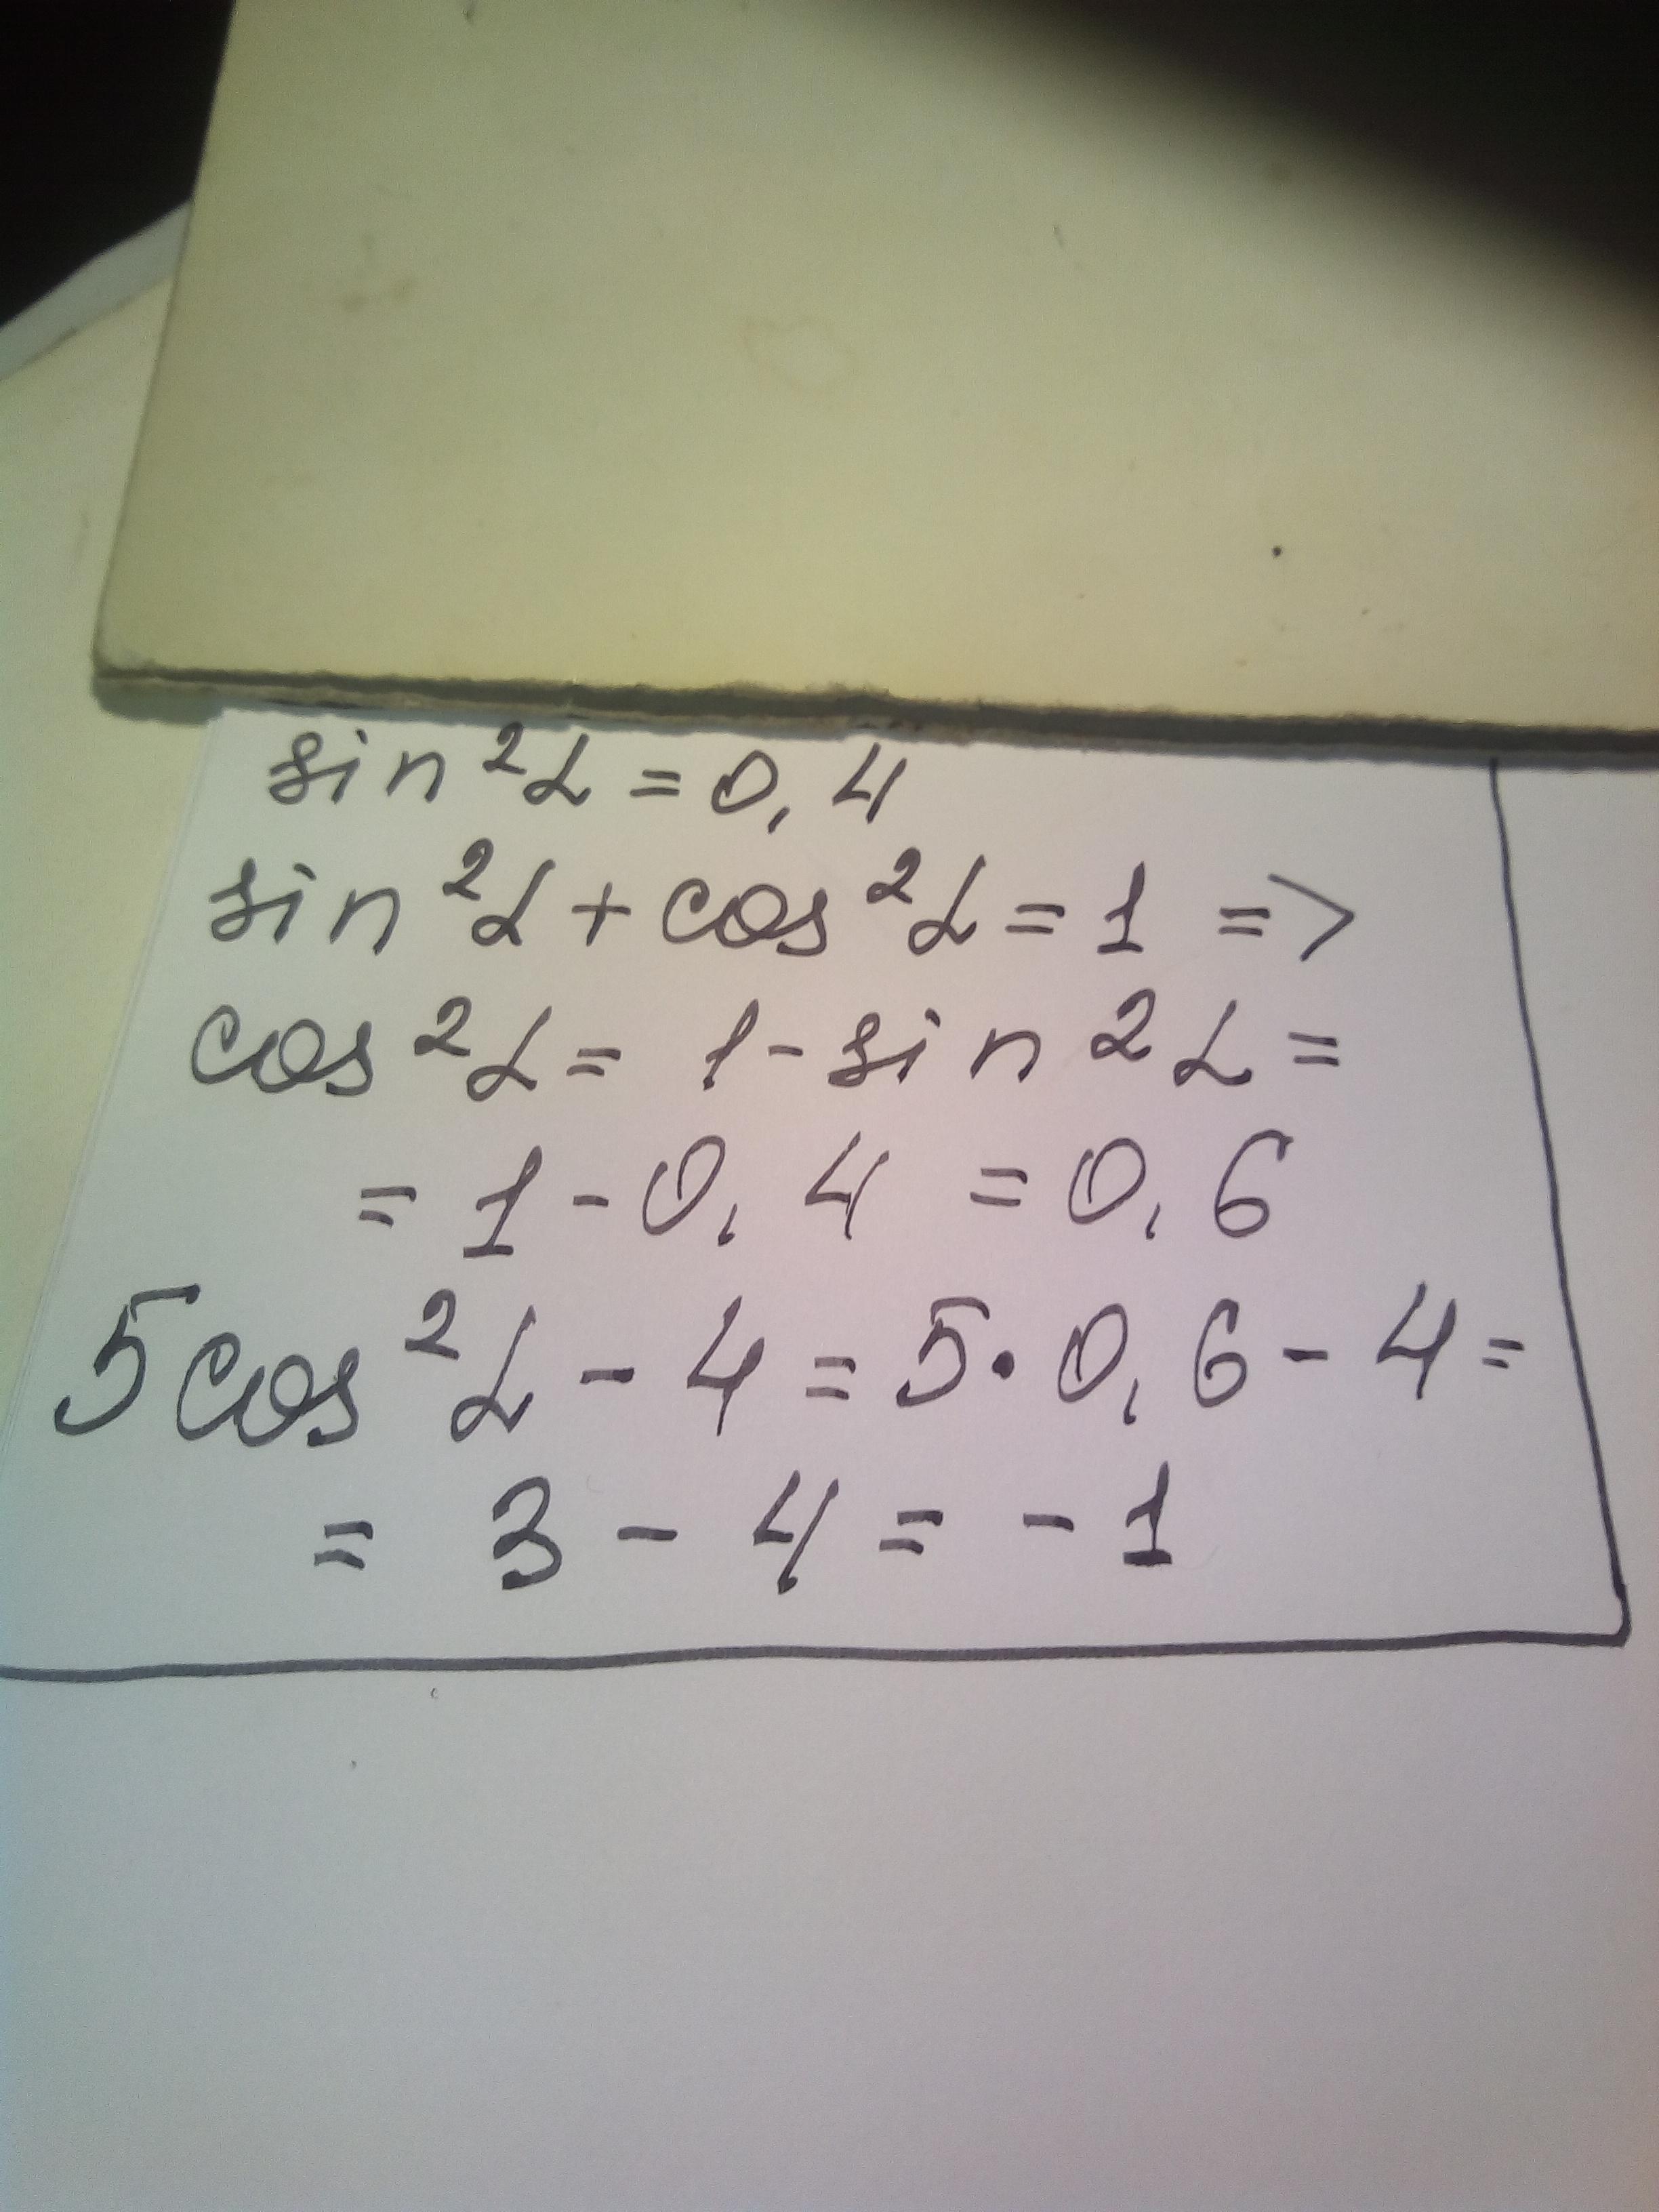 sin²α = 0,4
sin²α + cos²α = 1 =>
cos²α = 1 - sin²α =
= 1 - 0,4 = 0,6
5cos²α - 4 = 5·0,6 - 4 =
= 3 - 4 = -1